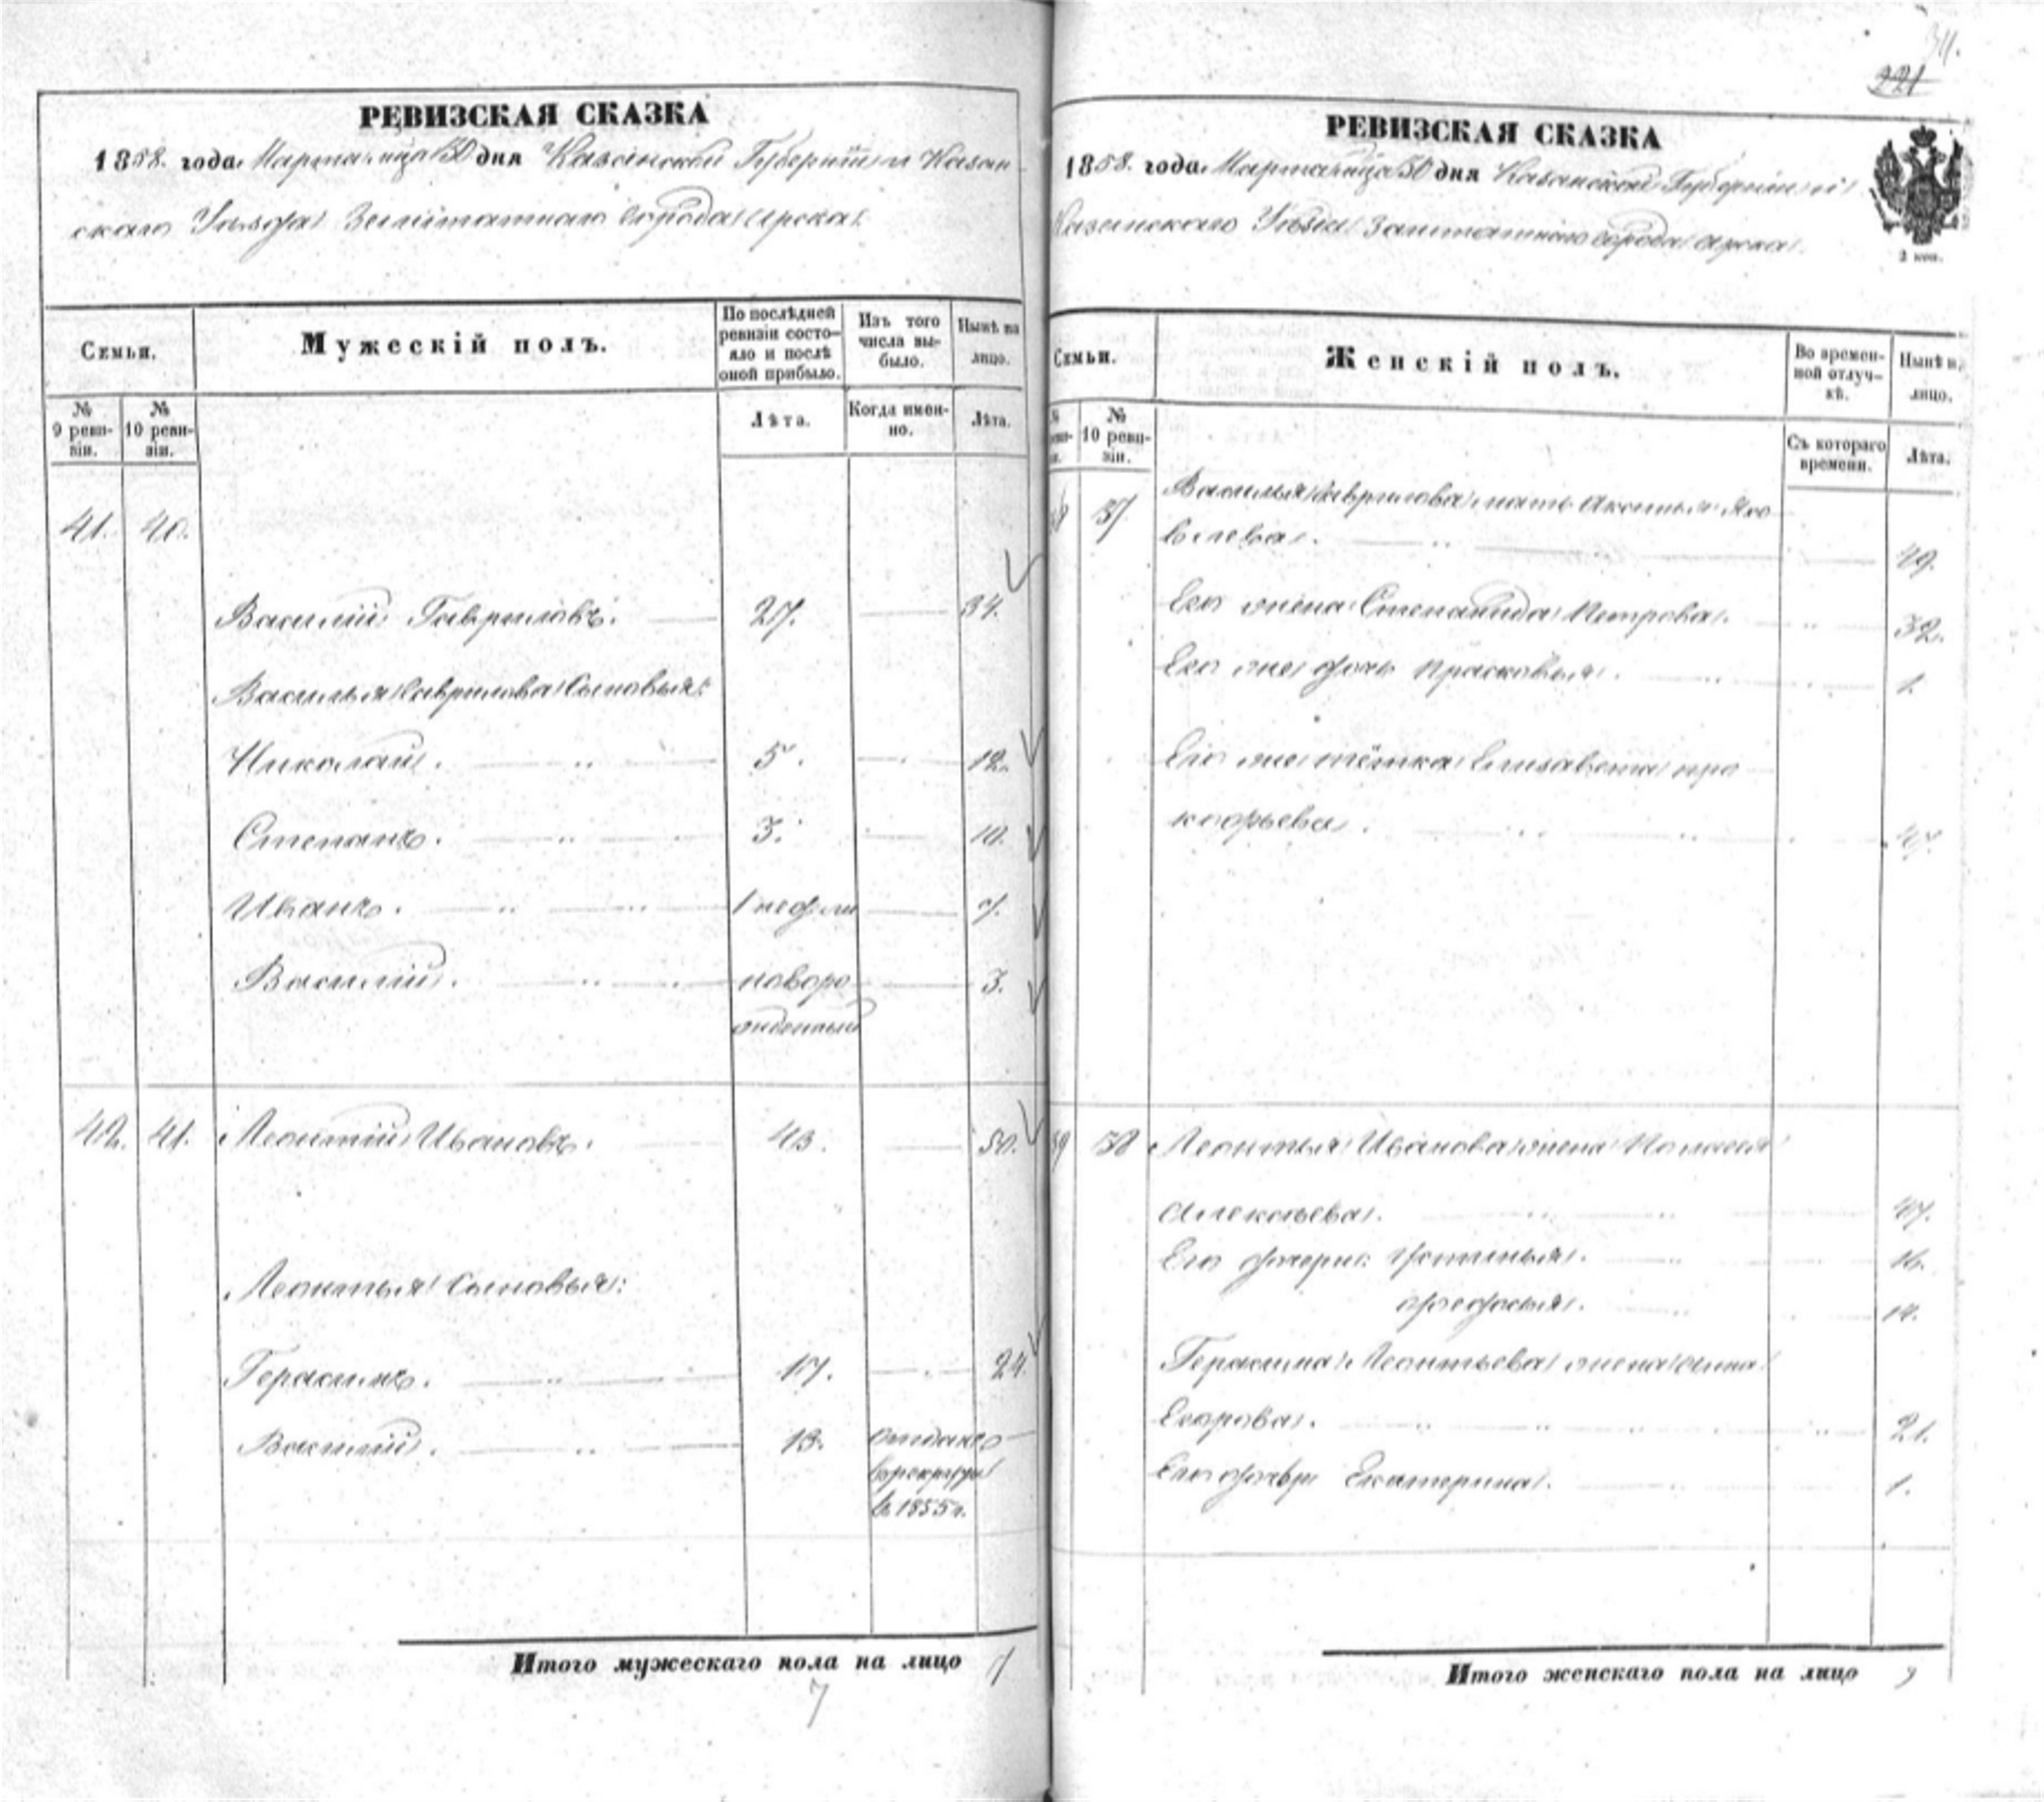 РЕВИЗСКАЯ СКАЗКА
1858. года. Марта мца 30 дня Казанской Губернии и Казан
скаго Уезда Заштатнаго города Арска.
Семьи.
Мужескій полъ.
По послѣдней
ревизіи состо-
яло и послѣ
оной прибыло.
Изъ того
числа вы-
было.
Нынѣ на
лицо.
№
9 реви-
зіи.
№
10 реви-
зіи.
Лѣта.
Когда имен-
но.
Лѣта.
41. 40.
Василій Гавриловъ. 27. 34.
Василья Гаврилова Сыновья:
Николай. 5. 12.
Степанъ. 3. 10.
Иванъ. 1 недели 7.
Василій. новоро 3.
жденный
42. 41. Леонтій Ивановъ. 43. 50.
Леонтья Сыновья:
Герасимъ. 17. 24.
Василій. 13. отданъ
в рекруты
в 1855 г.
Итого мужескаго пола на лицо 7
7
221
РЕВИЗСКАЯ СКАЗКА
1858. года. Марта мца 30 дня Казанской Губернии и
Казанскаго Уезда Заштатнаго города Арска.
2 коп.
Семьи.
Женскій полъ.
Во времен-
ной отлуч-
кѣ.
Нынѣ н.
лицо.
№
10 реви-
зіи.
Съ котораго
времени.
Лѣта.
38 37 Василья Гаврилова мать Аксинья Яко
влева. 49.
Его жена Степанида Петрова. 32.
Его же дочь Прасковья. 1.
Его же тётка Елисавета про
кофьева. 47.
39 38 Леонтья Иванова жена Пелагея
Алексеева. 47.
Его дочери: Устинья. 16.
Федосья. 14.
Герасима Леонтьева жена Анна
Егорова. 21.
Его дочерь Екатерина. 1.
Итого женскаго пола на лицо 9